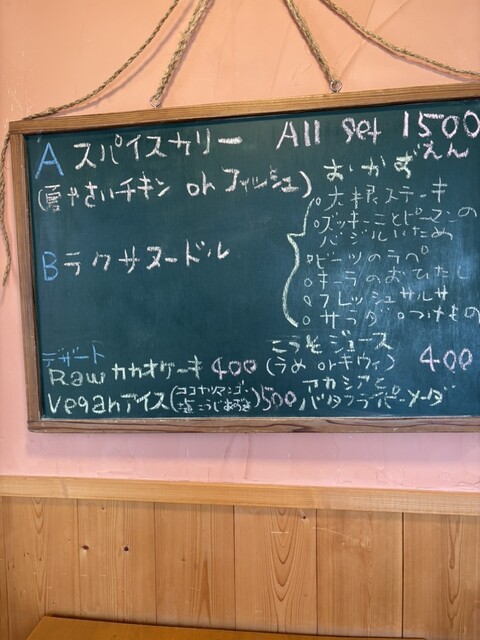 A スパイスカリー All set 1500えん
(夏やさいチキン or フィッシュ)
B ラクサヌードル
おかず
大根ステーキ
ズッキーニとピーマンの
バジルいため
ビーツのラペ
オーラのおひたし
フレッシュサルサ
サラダ つけもの
デザート
Raw カカオケーキ 400
Veganアイス(ココナツマンゴー 塩こうじあずき)500
こうそジュース
(うめ or キウィ) 400
アカシアと
バタフライピーソーダ